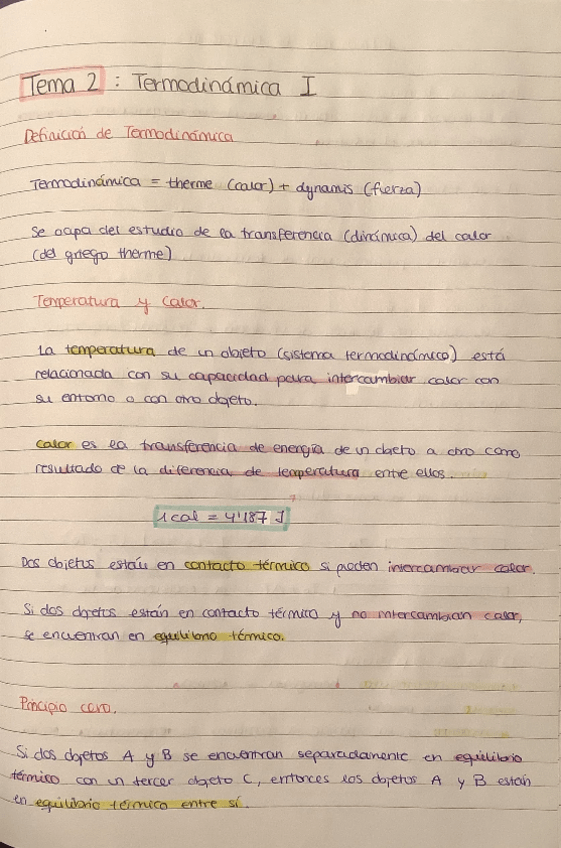 Tema 2 : Termodinámica I
Definición de Termodinámica
Termodinámica = therme (calor) + dynamis (fuerza)
Se ocupa del estudio de la transferencia (dinámica) del calor
(del griego therme)
Temperatura y Calor.
La temperatura de un objeto (sistema termodinámico) está
relacionada con su capacidad para intercambiar calor con
su entorno o con otro objeto.
Calor es la transferencia de energía de un objeto a otro como
resultado de la diferencia de temperatura entre ellos.
1 cal = 4'187 J
Dos objetos están en contacto térmico si pueden intercambiar calor.
Si dos objetos están en contacto térmico y no intercambian calor,
se encuentran en equilibrio térmico.
Principio cero.
Si dos objetos A y B se encuentran separadamente en equilibrio
térmico con un tercer objeto C, entonces los objetos A y B están
en equilibrio térmico entre sí.